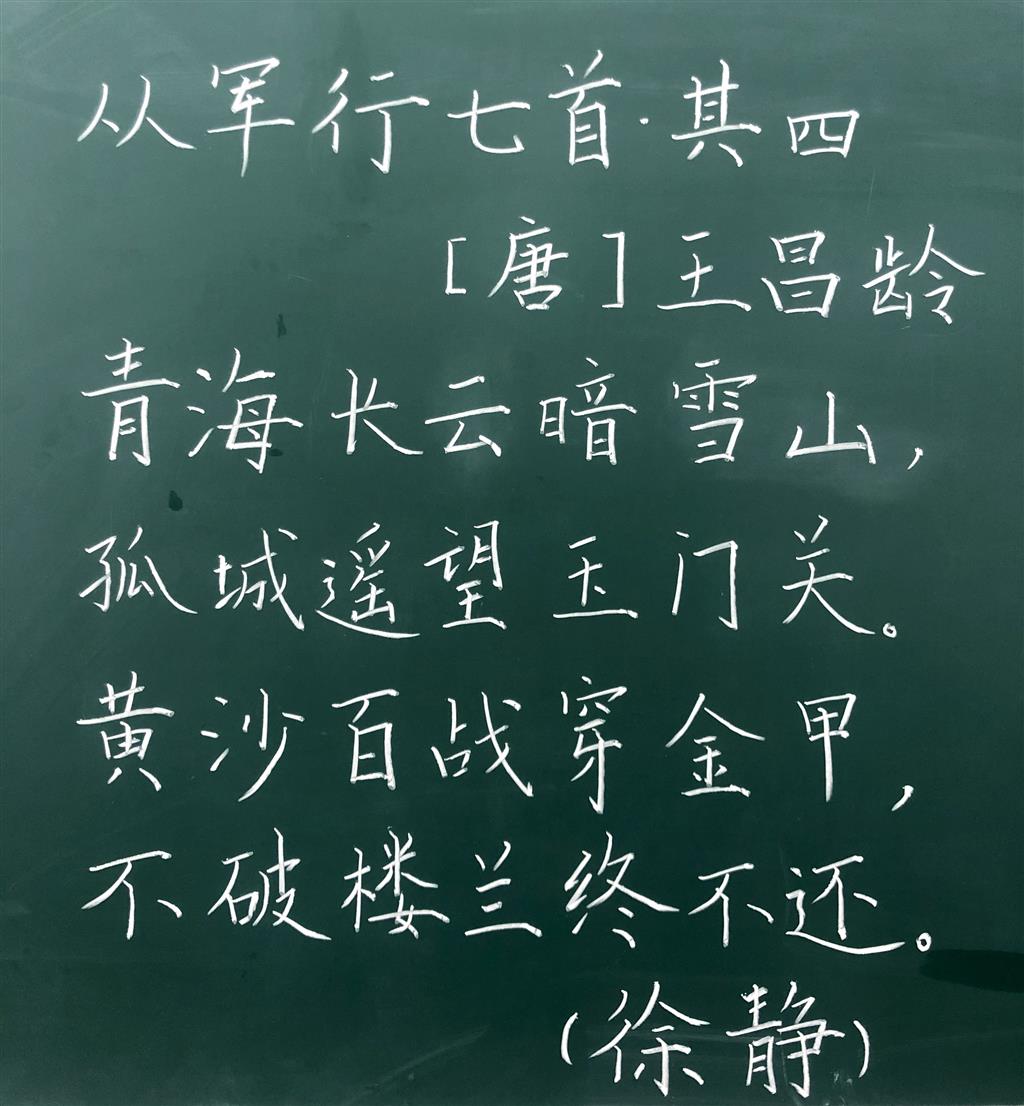 从军行七首·其四
[唐]王昌龄
青海长云暗雪山，
孤城遥望玉门关。
黄沙百战穿金甲，
不破楼兰终不还。
(徐静)